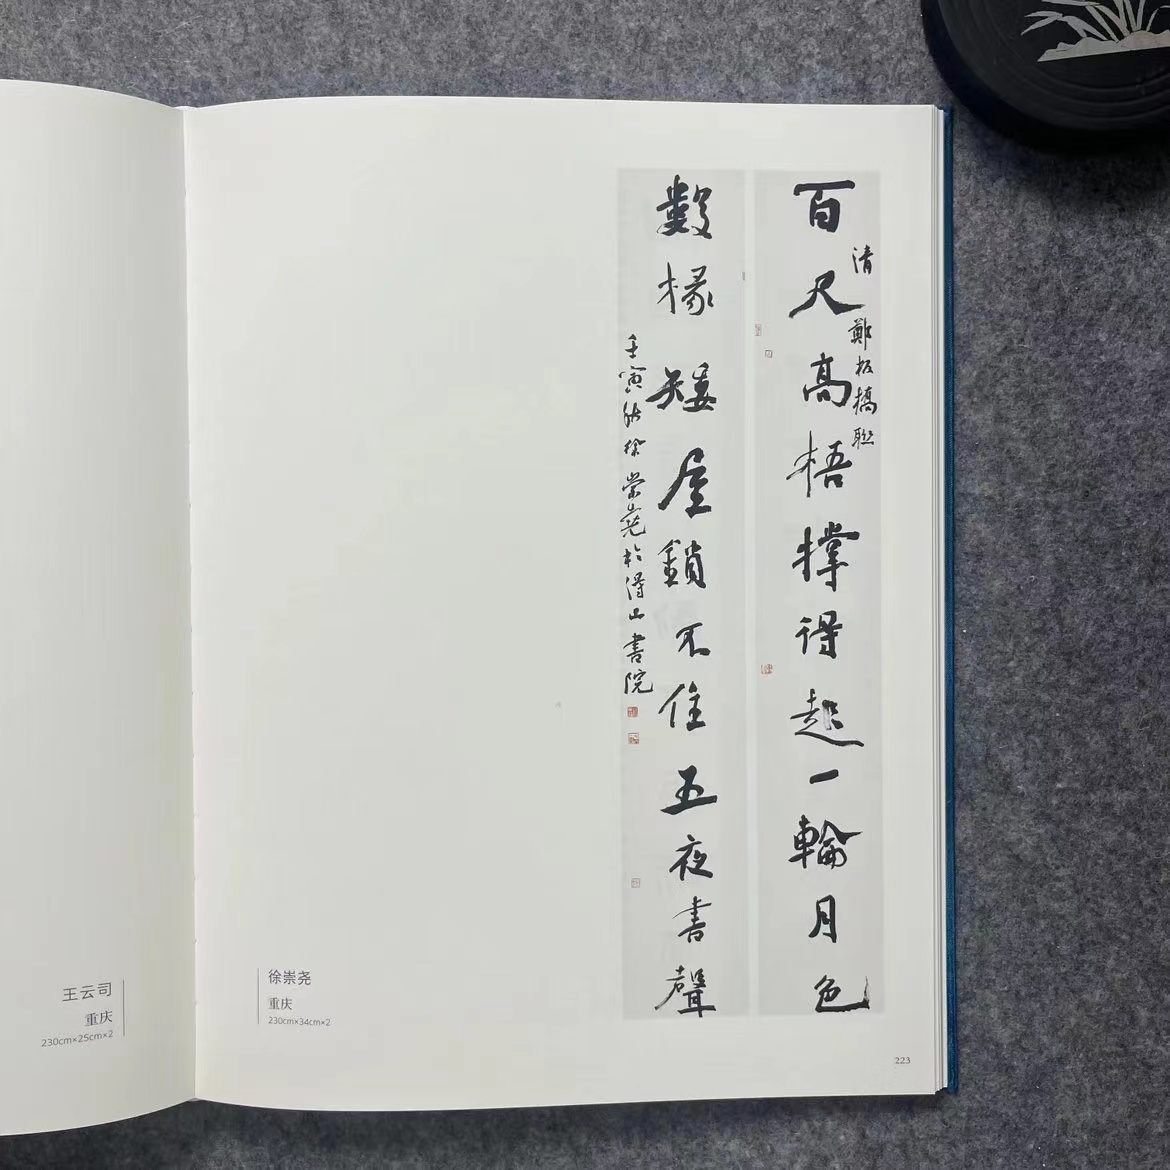 百尺高梧撑得起一輪月色
清鄭板橋聯
數椽矮屋鎖不住五夜書聲
壬寅秋徐崇堯於縉山書院
王云司
重庆
230cm×25cm×2
徐崇尧
重庆
230cm×34cm×2
223